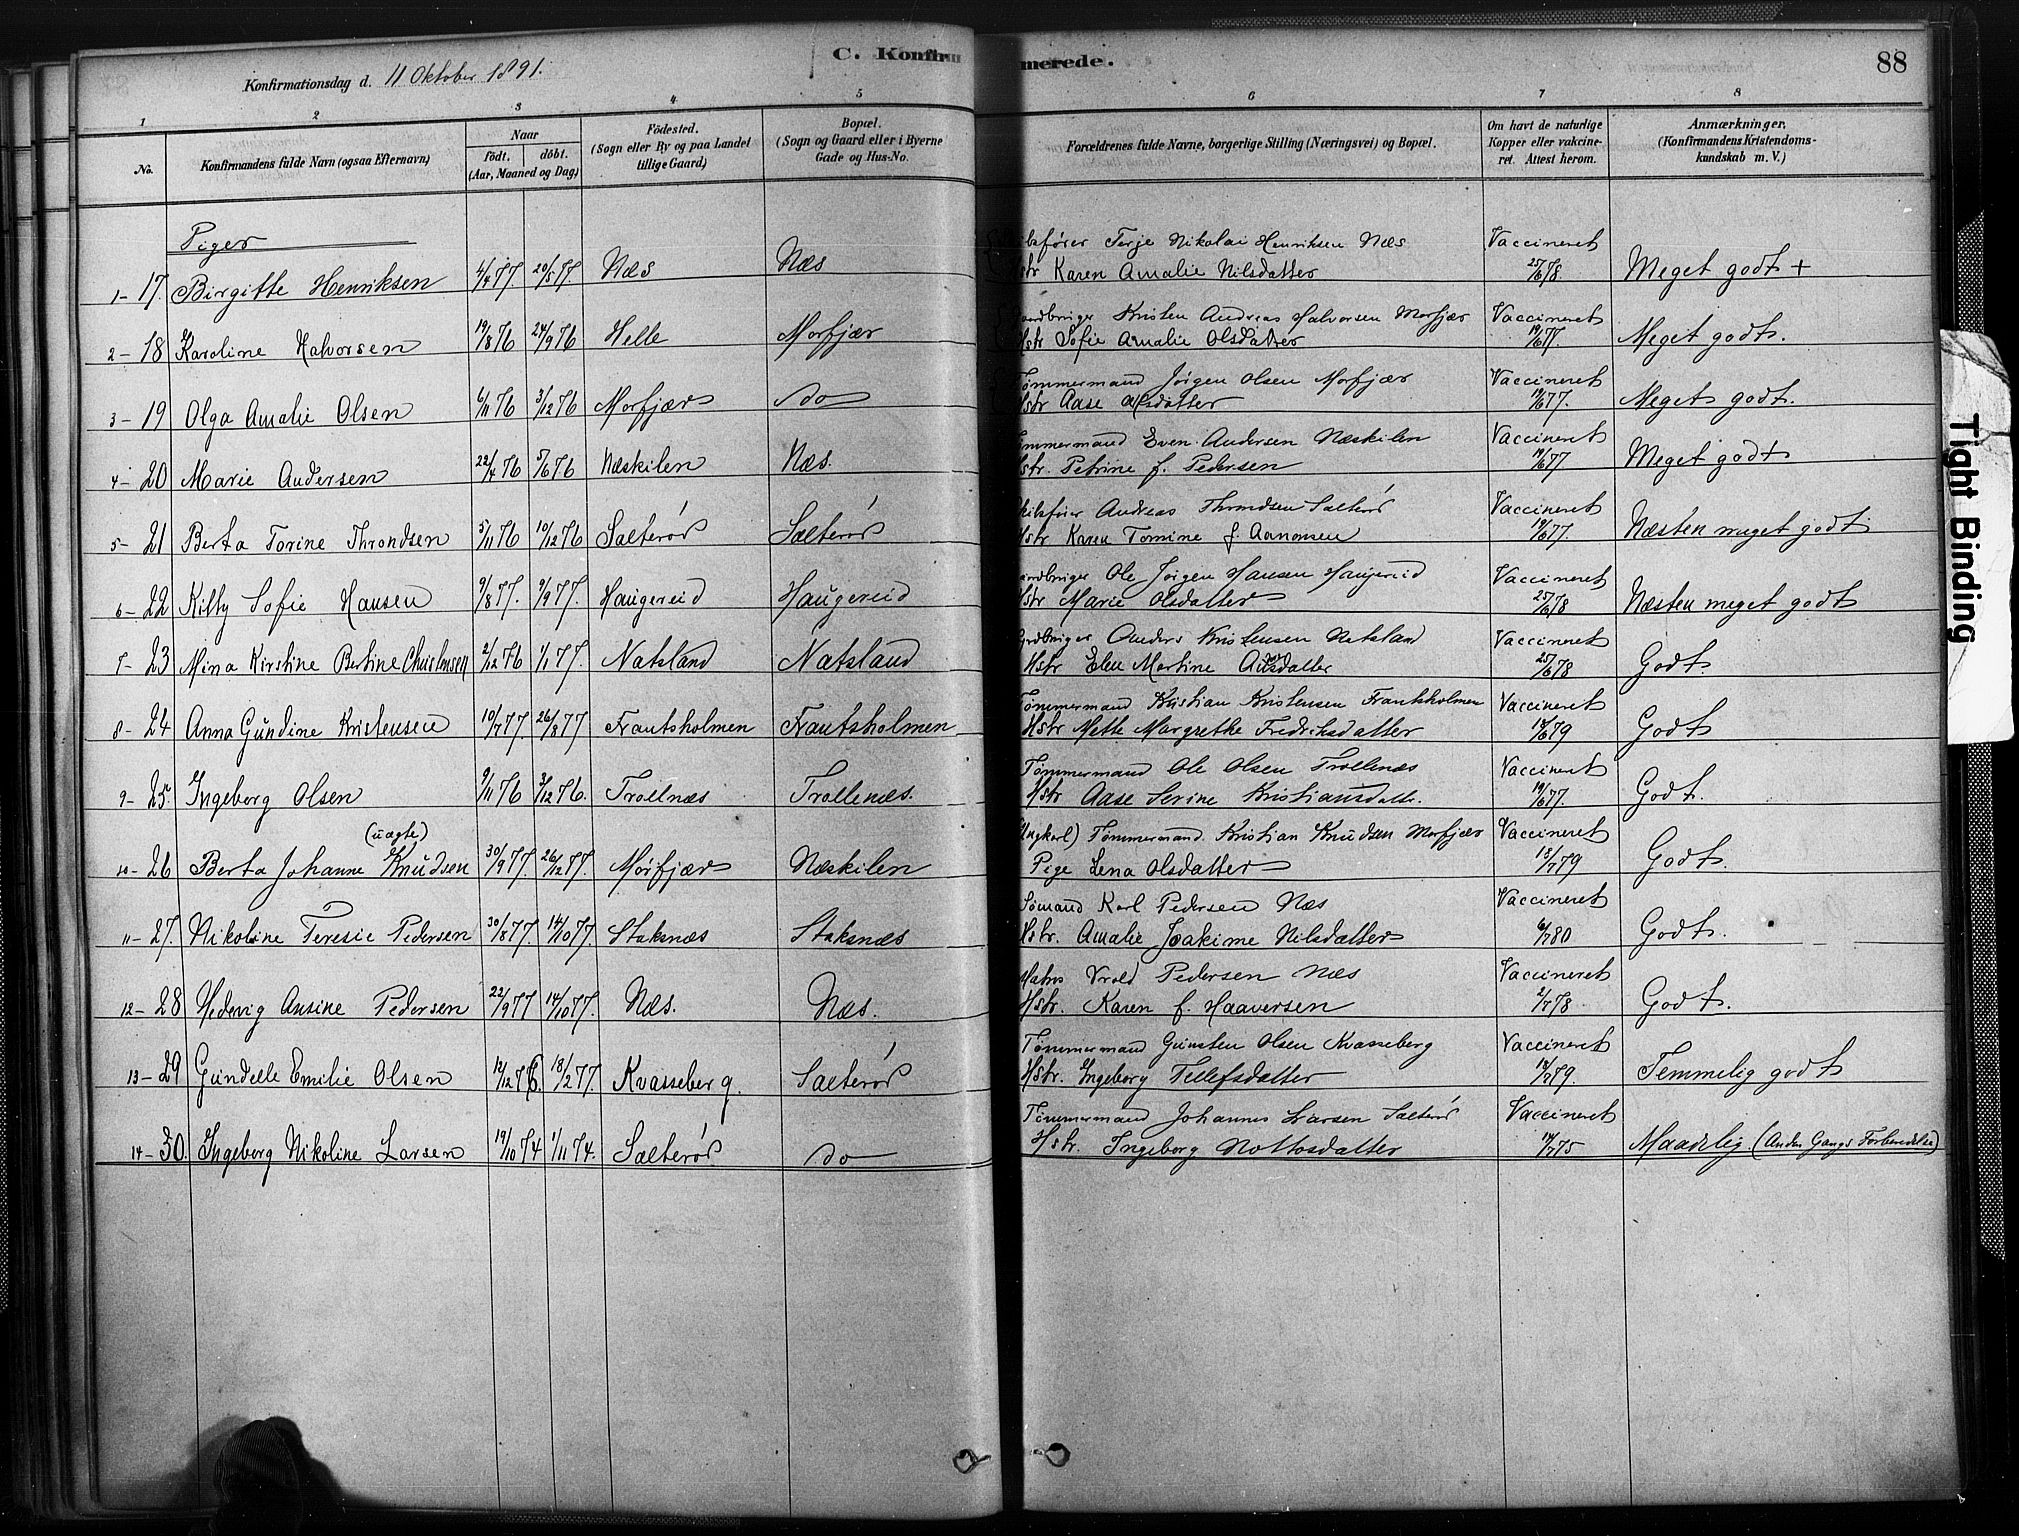 C. Konfirmerede.
88
Konfirmationsdag d. 11 Oktober 1891.
1 2 3 4 5 6 7 8
No.
Konfirmandens fulde Navn (ogsaa Efternavn)
Naar
født. døbt.
(Aar, Maaned og Dag)
Fødested.
(Sogn eller By og paa Landet
tillige Gaard)
Bopæl.
(Sogn og Gaard eller i Byerne
Gade og Hus-No.
Forældrenes fulde Navne, borgerlige Stilling (Næringsvei) og Bopæl.
Om havt de naturlige
Kopper eller vakcine-
ret. Attest herom.
Anmærkninger,
(Konfirmandens Kristendoms-
kundskab m. V.)
Piger
Terje Nikolai Henriksen Næs Vaccineret
1- 17. Birgitte Henriksen 4/4 77. 20/5 77. Næs Næs Hstr Karen Amalie Nilsdatter 25/6 78 Meget godt +
Kristen Andreas Halvorsen Morfjær Vaccineret
2- 18 Karoline Halvorsen 19/8 76 24/9 76 Helle Morfjær Hstr Sofie Amalie Olsdatter 19/6 77. Meget godt.
Tømmermand Jørgen Olsen Morfjær Vaccineret
3- 19 Olga Amalie Olsen 6/11 76 3/12 76 Morfjær do Hstr Aase Olsdatter 19/6 77. Meget godt.
Tømmermand Even Andersen Næskilen Vaccineret
4- 20 Marie Andersen 22/4 76 5/6 76 Næskilen Næs. Hstr. Petrine f. Pedersen 19/6 77 Meget godt
Skibsfører Andreas Throndsen Salterød Vaccineret
5- 21 Berta Torine Throndsen 5/11 76 10/12 76 Salterød Salterød Hstr Karen Tomine f. Aanonsen 19/6 77. Næsten meget godt
Ole Jørgen Hansen Haugereid Vaccineret
6- 22 Kitty Sofie Hansen 9/8 77. 9/9 77. Haugereid Haugereid Hstr Marie Olsdatter 25/6 78 Næsten meget godt
Anders Kristensen Natsland Vaccineret
7- 23 Mina Kirstine Bertine Christensen 2/12 76 1/1 77. Natsland Natsland Hstr Elen Martine 25/6 78 Godt
Tømmermand Kristian Kristensen Frantsholmen Vaccineret
8- 24 Anna Gundine Kristensen 10/7 77. 26/8 77 Frantsholmen Frantsholmen Hstr Mette Margrethe Fredriksdatter 18/6 79 Godt
Tømmermand Ole Olsen Trollenæs Vaccineret
9- 25. Ingeborg Olsen 9/11 76 3/12 76. Trollnæs Trollenæs. Hstr Aase Serine Kristiansdatt. 19/6 77. Godt.
(uægte) (Ungkarl) Tømmermand Kristian Knudsen Morfjær Vaccineret
10- 26 Berta Johanne Knudsen 30/9 77. 26/12 77. Morfjær Næskilen Pige Lena Olsdatter 18/7 79 Godt.
Sømand Karl Pedersen Næs Vaccineret
11- 27. Nikoline Teresie Pedersen 30/8 77. 14/10 77. Staksnæs Staksnæs Hstr. Amalie Joakime Nilsdatter 6/7 80 Godt.
Matros Vrold Pedersen Næs Vaccineret
12- 28 Hedevig Ansine Pedersen 22/9 77 14/10 77. Næs. Næs. Hstr. Karen f. Haaversen 2/7 78 Godt.
Tømmermand Gunsten Olsen Kvasseberg Vaccineret
13- 29 Gundelle Emilie Olsen 12/12 76. 18/2 77. Kvasseberg. Salterød Hstr. Ingeborg Tellefsdatter 18/7 79. Temmelig godt
Tømmermand Johannes Larsen Salterød Vaccineret
14- 30. Ingeborg Nikoline Larsen 19/10 74 1/11 74. Salterød do Hstr. Ingeborg Nottosdatter 14/7 75 Maadelig. (Anden Gangs Forberedelse)
Tight Binding